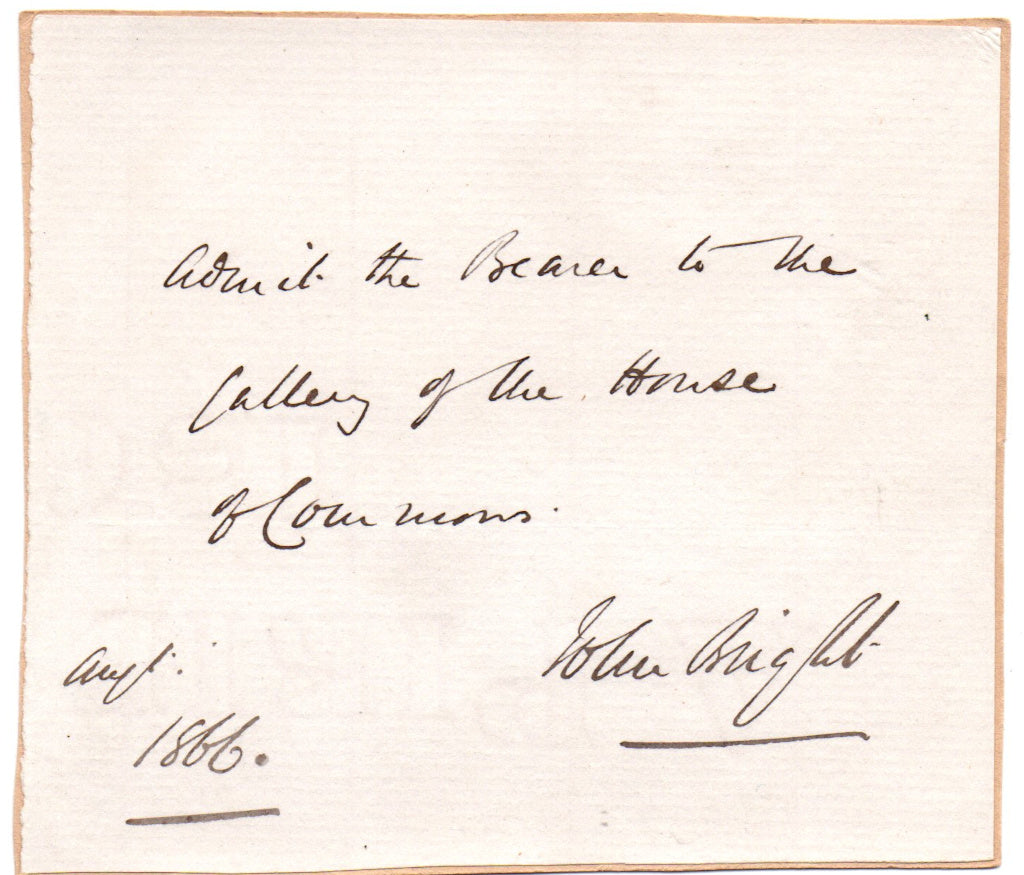 Admit the Bearer to the
Gallery of the House
of Commons.
John Bright
Augt.
1866.